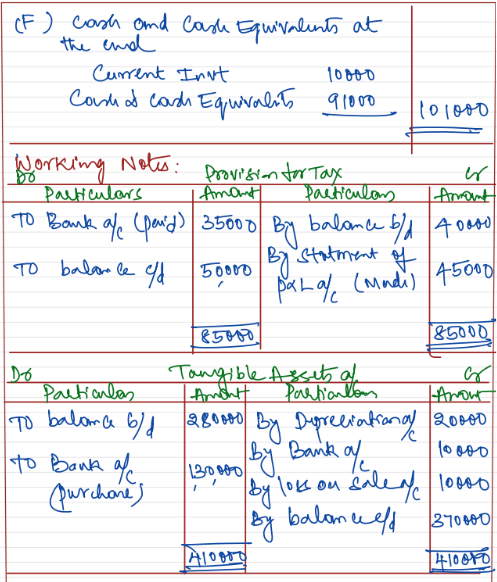 (F) Cash and Cash Equivalents at
the end
Current Invt 10000
Cash & Cash Equivalents 91000 101000
Working Notes:
Dr Provision for Tax Cr
Particulars Amount Particulars Amount
TO Bank a/c (paid) 35000 By balance b/d 40000
TO balance c/d 50000 By Statement of
P&L a/c (Made) 45000
85000 85000
Dr Tangible Assets a/c Cr
Particulars Amount Particulars Amount
TO balance b/d 280000 By Depreciation a/c 20000
TO Bank a/c 130,000 By Bank a/c 10000
(purchase) By loss on sale a/c 10000
By balance c/d 370000
410000 410000